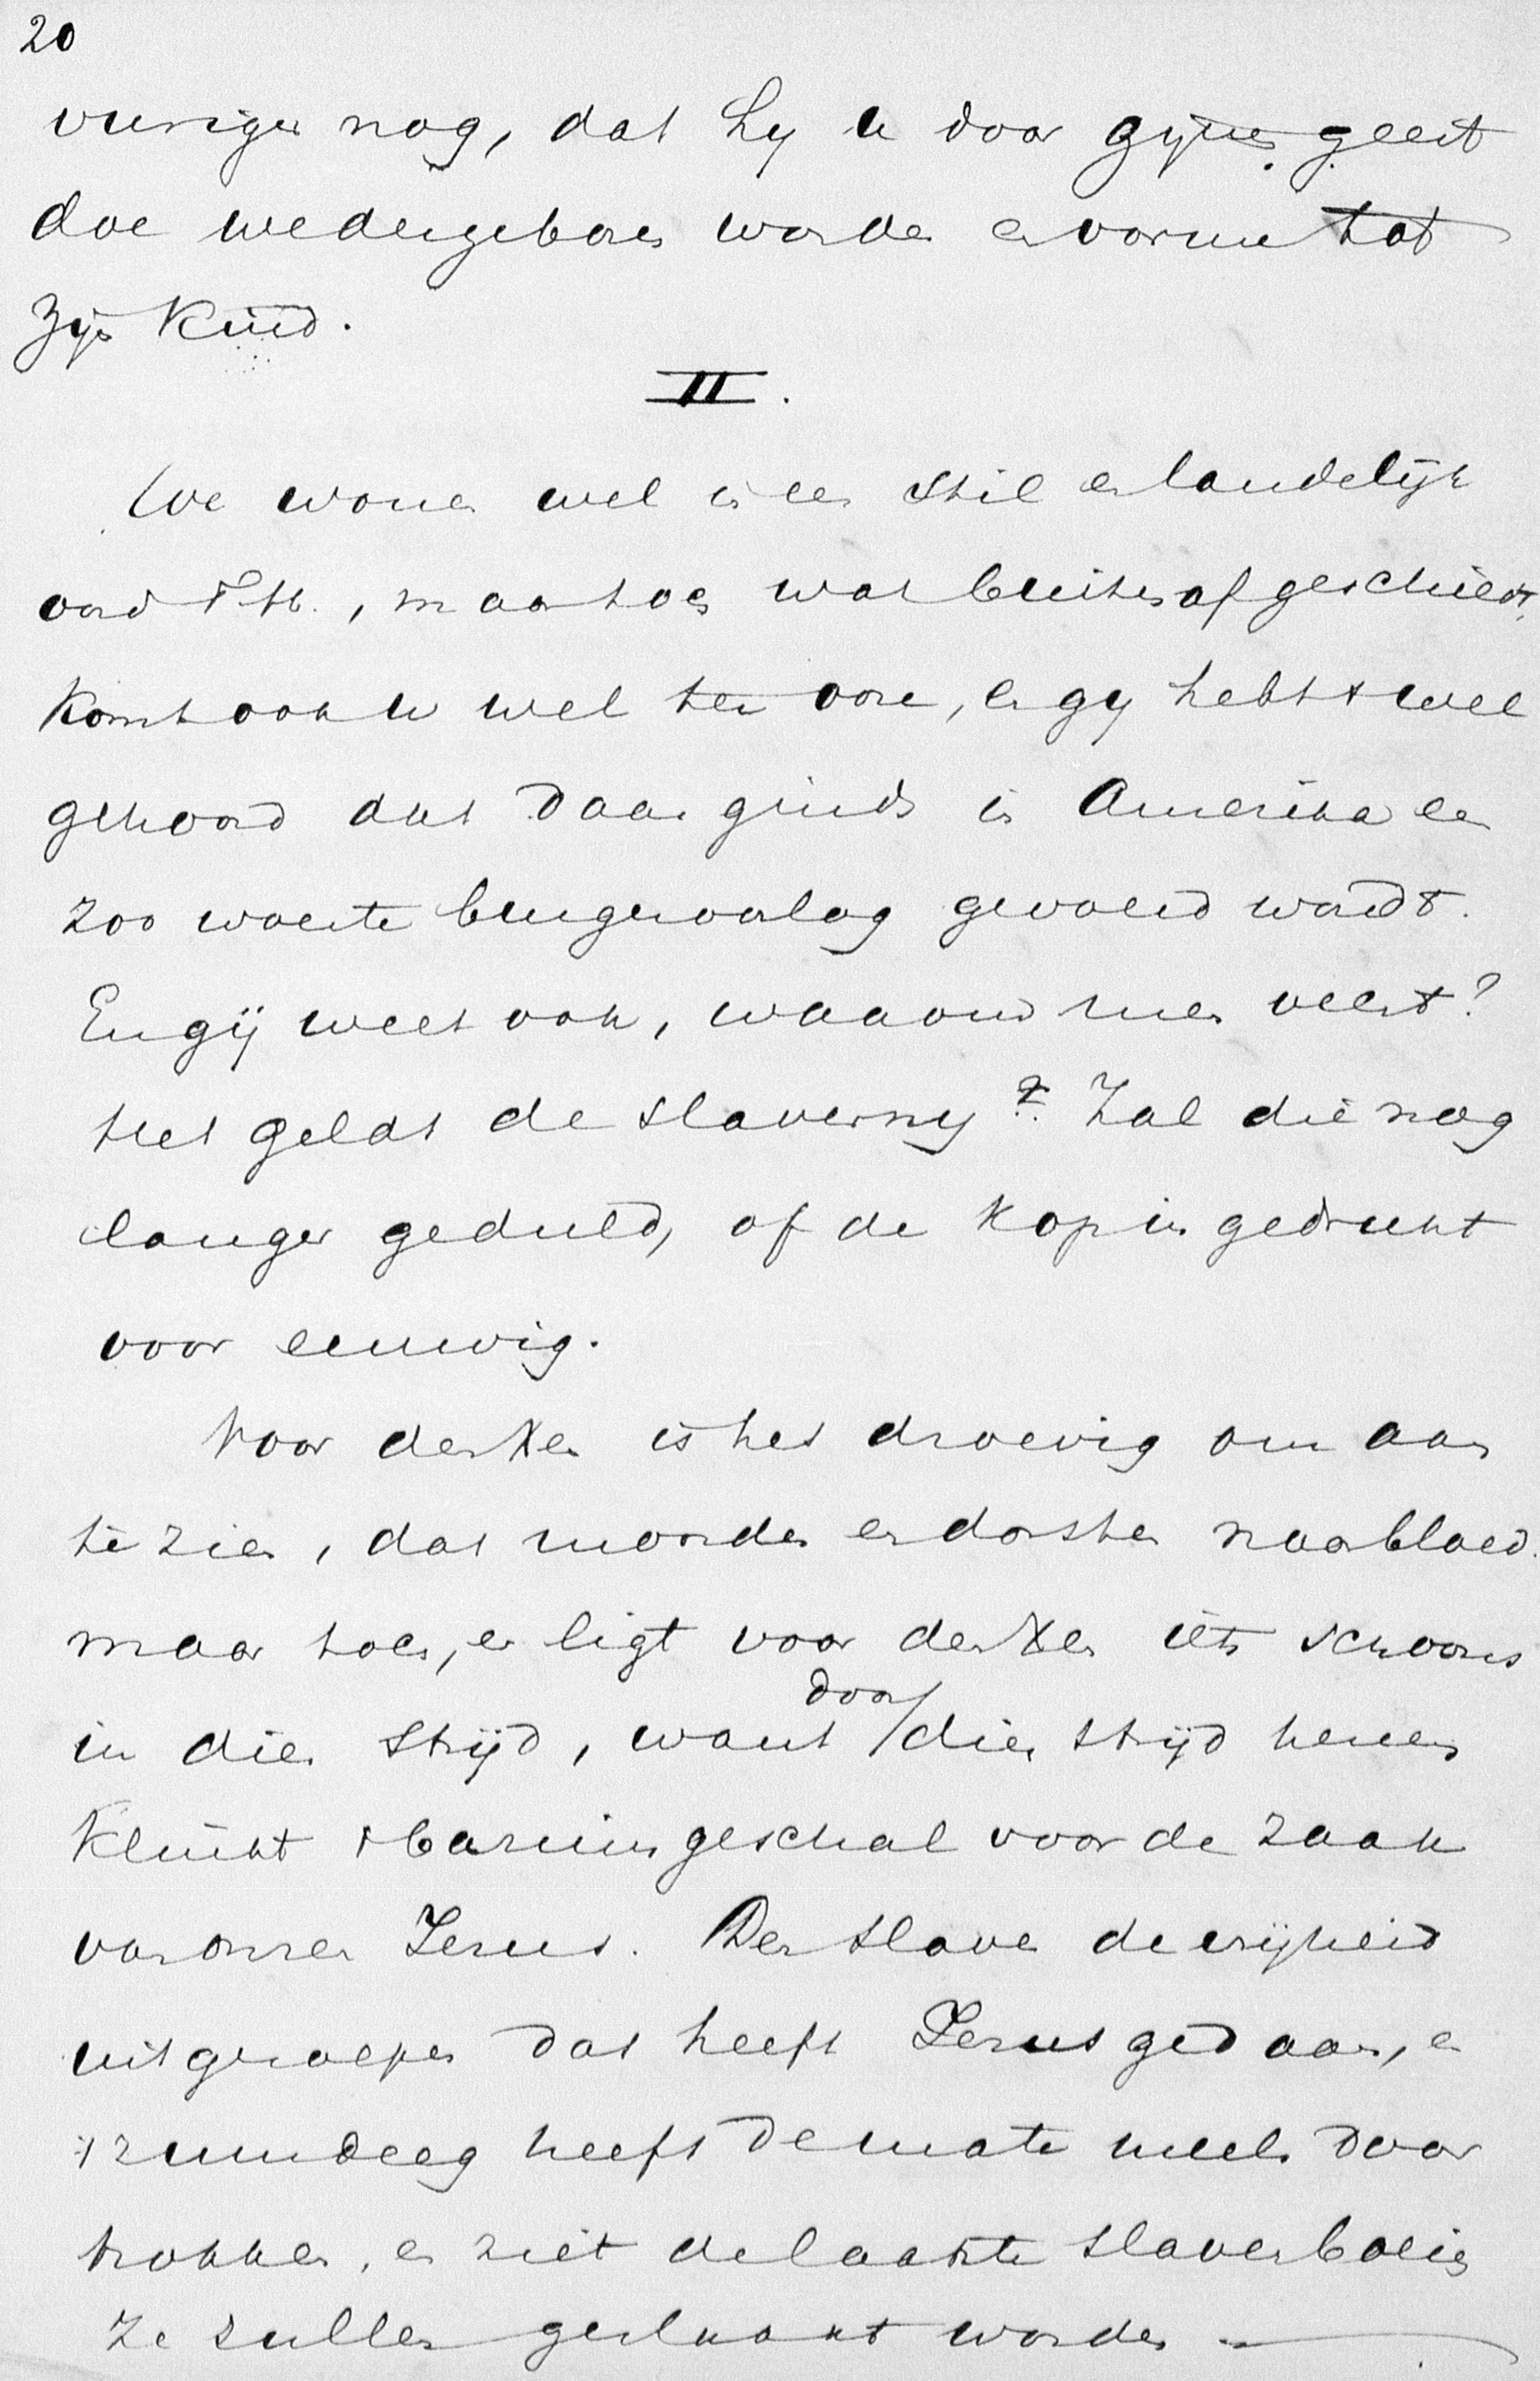 20
vuriger nog, dat Hy u door zijnen geest
doe wedergeboren worden en vorme tot
zijn Kind.
II.
We wonen wel in een stil en landelijk
oord T. H., maar toch wat buitenaf geschiedt,
komt ook u wel ten oore, en gy hebt 't wel
gehoord dat daar ginds in Amerika een
zoo woeste burgeroorlog gevoerd wordt.
En gij weet ook, waarom men vecht?
Het geldt de slaverny. Zal die nog
langer geduld, of de kop ingedrukt
voor eeuwig.
Voor den Xen is het droevig om aan
te zien, dat moorden en dorsten naar bloed.
maar toch, er ligt voor den Xen iets schoons
in dien strijd, want door dien strijd henen
Klinkt 't bazuingeschal voor de zaak
van onzen Jezus. Den slaven de vrijheid
uitgeroepen dat heeft Jezus gedaan, en
't zuurdeeg heeft de maten meels door
trokken, en ziet de laatste slavenboeien
ze zullen geslaakt worden —